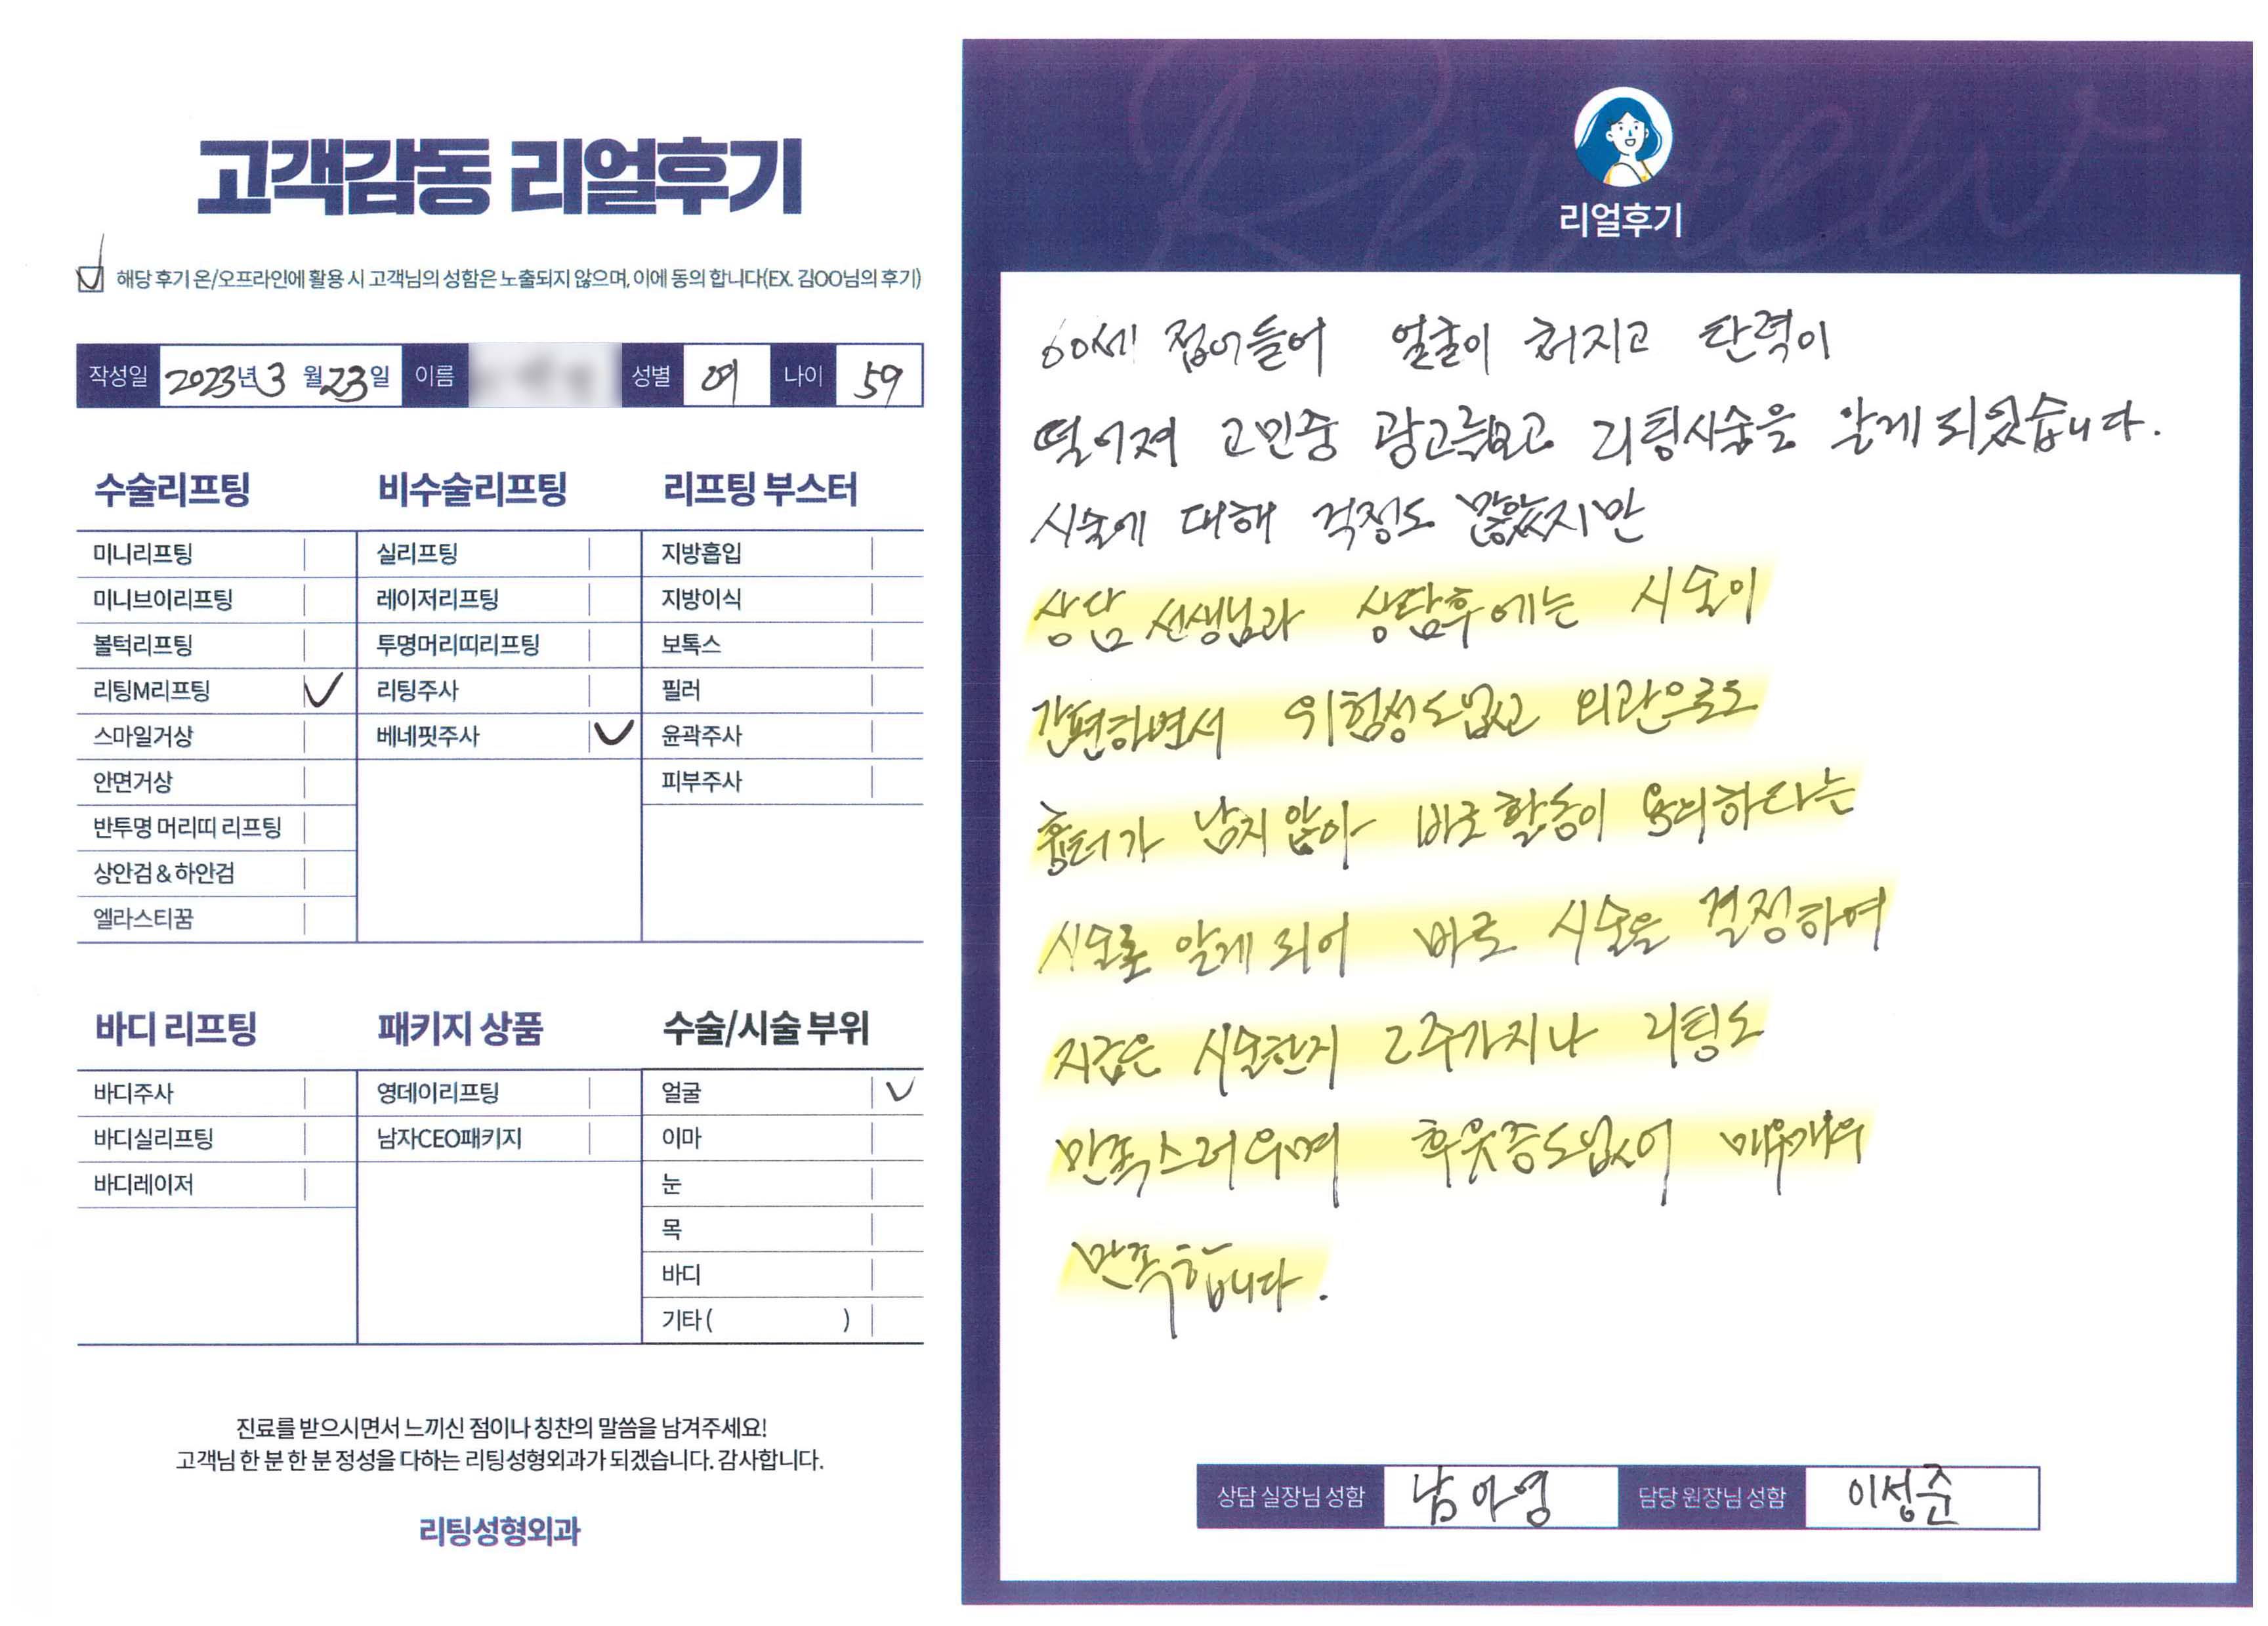 고객감동 리얼후기
해당 후기 온/오프라인에 활용 시 고객님의 성함은 노출되지 않으며, 이에 동의 합니다(EX. 김OO님의 후기)
작성일 2023년 3월 23일 이름 성별 여 나이 59
수술리프팅
미니리프팅
미니브이리프팅
볼턱리프팅
리팅M리프팅
스마일거상
안면거상
반투명 머리띠 리프팅
상안검 & 하안검
엘라스티꿈
비수술리프팅
실리프팅
레이저리프팅
투명머리띠리프팅
리팅주사
베네핏주사
리프팅 부스터
지방흡입
지방이식
보톡스
필러
윤곽주사
피부주사
바디 리프팅
바디주사
바디실리프팅
바디레이저
패키지 상품
영데이리프팅
남자CEO패키지
수술/시술 부위
얼굴
이마
눈
목
바디
기타 ( )
진료를 받으시면서 느끼신 점이나 칭찬의 말씀을 남겨주세요!
고객님 한 분 한 분 정성을 다하는 리팅성형외과가 되겠습니다. 감사합니다.
리팅성형외과
Review
리얼후기
60세 접어들어 얼굴이 처지고 탄력이
떨어져 고민중 광고를보고 리팅시술을 알게 되었습니다.
시술에 대해 걱정도 많았지만
상담 선생님과 상담후에는 시술이
간편하면서 위험성도없고 외관으로도
흉터가 남지 않아 바로 활동이 용의하다는
시술로 알게 되어 바로 시술을 결정하여
지금은 시술한지 2주가지나 리팅도
만족스러우며 후윳증도없어 매우매우
만족합니다.
상담 실장님 성함 남아영 담당 원장님 성함 이성준